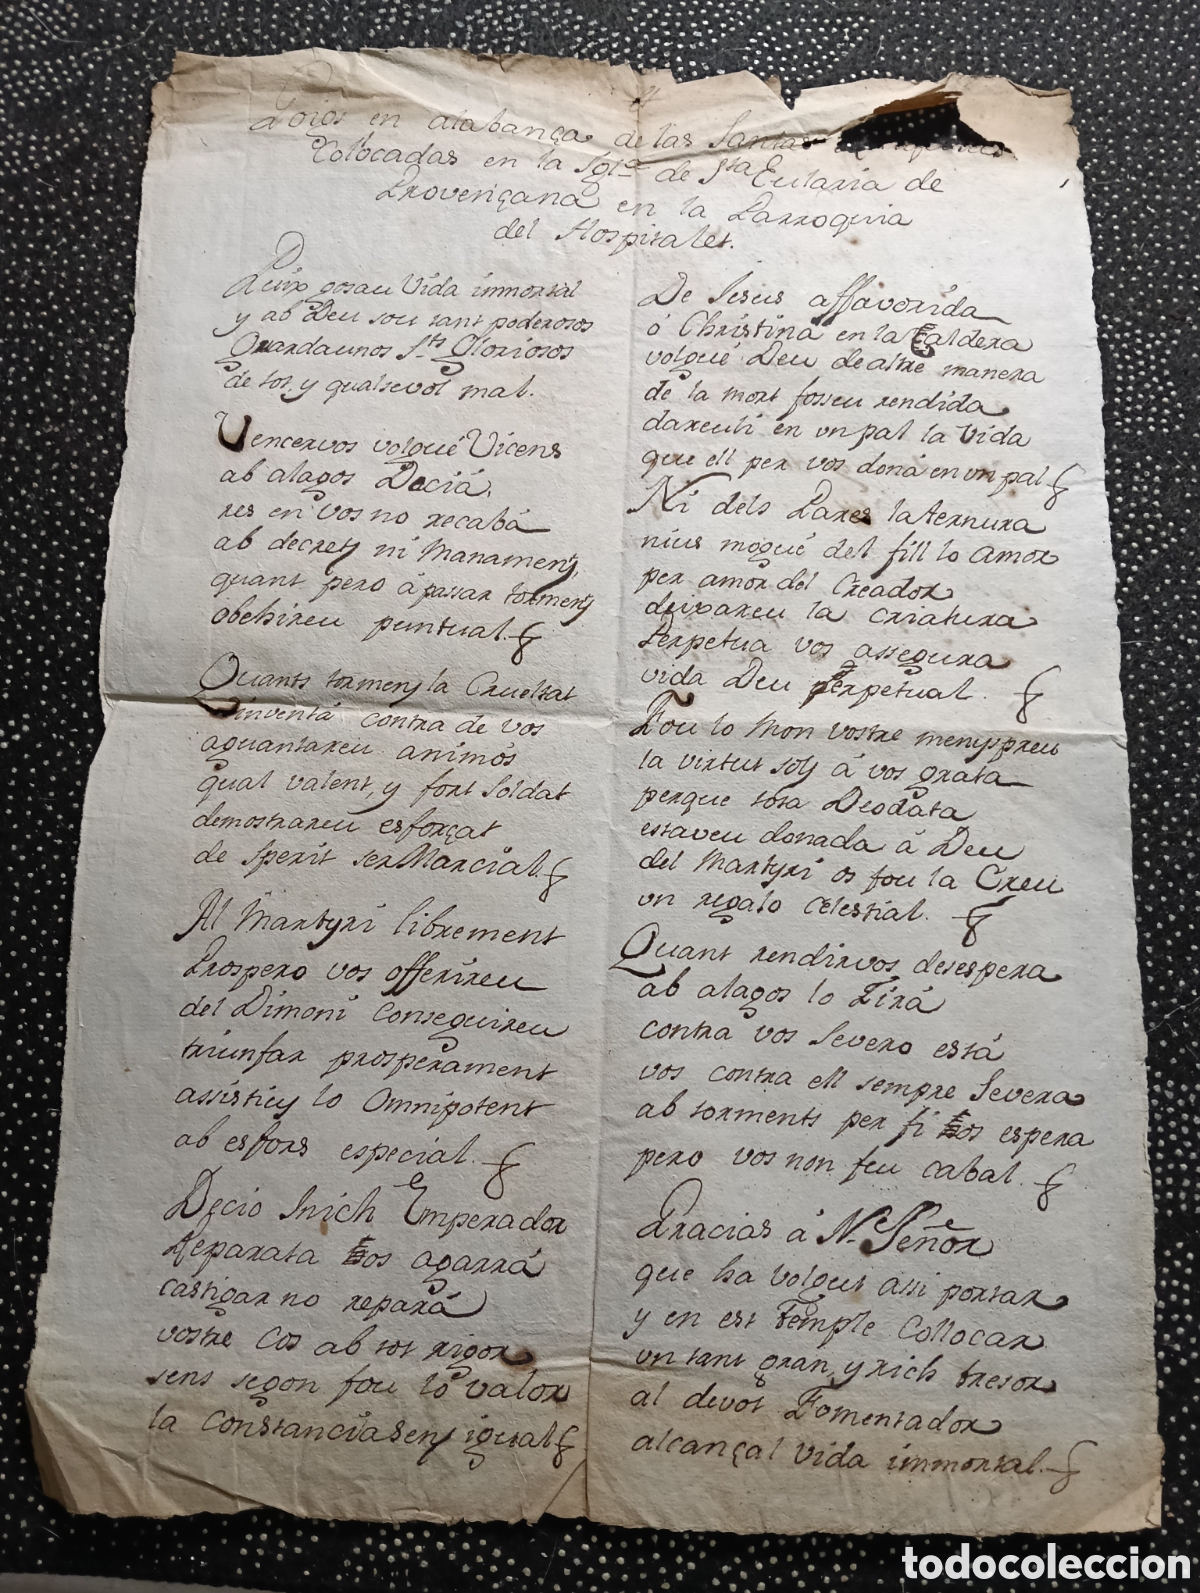 Gojos en alabança de las Santas
Colocadas en la Igla. de Sta Eularia de
Provençana en la Parroquia
del Hospitalet.
Puix gosau Vida immortal
y ab Deu sou tant poderosos
Guardaunos Sts. Gloriosos
de tot, y qualsevol mal.
Vencervos volgué Vicens
ab alagos Daciá,
res en vos no recabá
ab decrets ni Manaments,
quant pero á passar torments
obehireu puntual.
Quants torments la Crueltat
inventá contra de vos
aguantareu animós
qual valent, y fort Soldat
demostrareu esforçat
de sperit ser Marcial.
Al Martyri librement
Prospero vos offerireu
del Dimoni conseguireu
triunfar prosperament
assistiey lo Omnipotent
ab esfors especial.
Decio Inich Emperador
Reparata vos agarrá
castigar no repará
vostre Cos ab tot rigor
sens segon fou lo valor
la Constancia sens igual
De Jesus affavorida
ó Christina en la Caldera
volgué Deu de altre manera
de la mort fosseu rendida
dareuli en un pal la Vida
que ell per vos doná en un pal
Ni dels Pares la ternura
nius mogué del fill lo amor
per amor del Creador
deixareu la criatura
Perpetua vos assegura
vida Deu Perpetual.
Fou lo Mon vostre menyspreu
la virtut sols á vos grata
perque tota Deodata
estaveu donada á Deu
del Martyri os fou la Creu
un regalo Celestial.
Quant rendirvos desespera
ab alagos lo Tirá
contra vos Severo está
vos contra ell sempre Severa
ab torments per fi vos espera
pero vos non feu cabal.
Gracias á N. Señor
que ha volgut assi portar
y en est Temple Collocar
un tant gran, y rich tresor
al devot Fomentador
alcançal Vida immortal.
todocoleccion